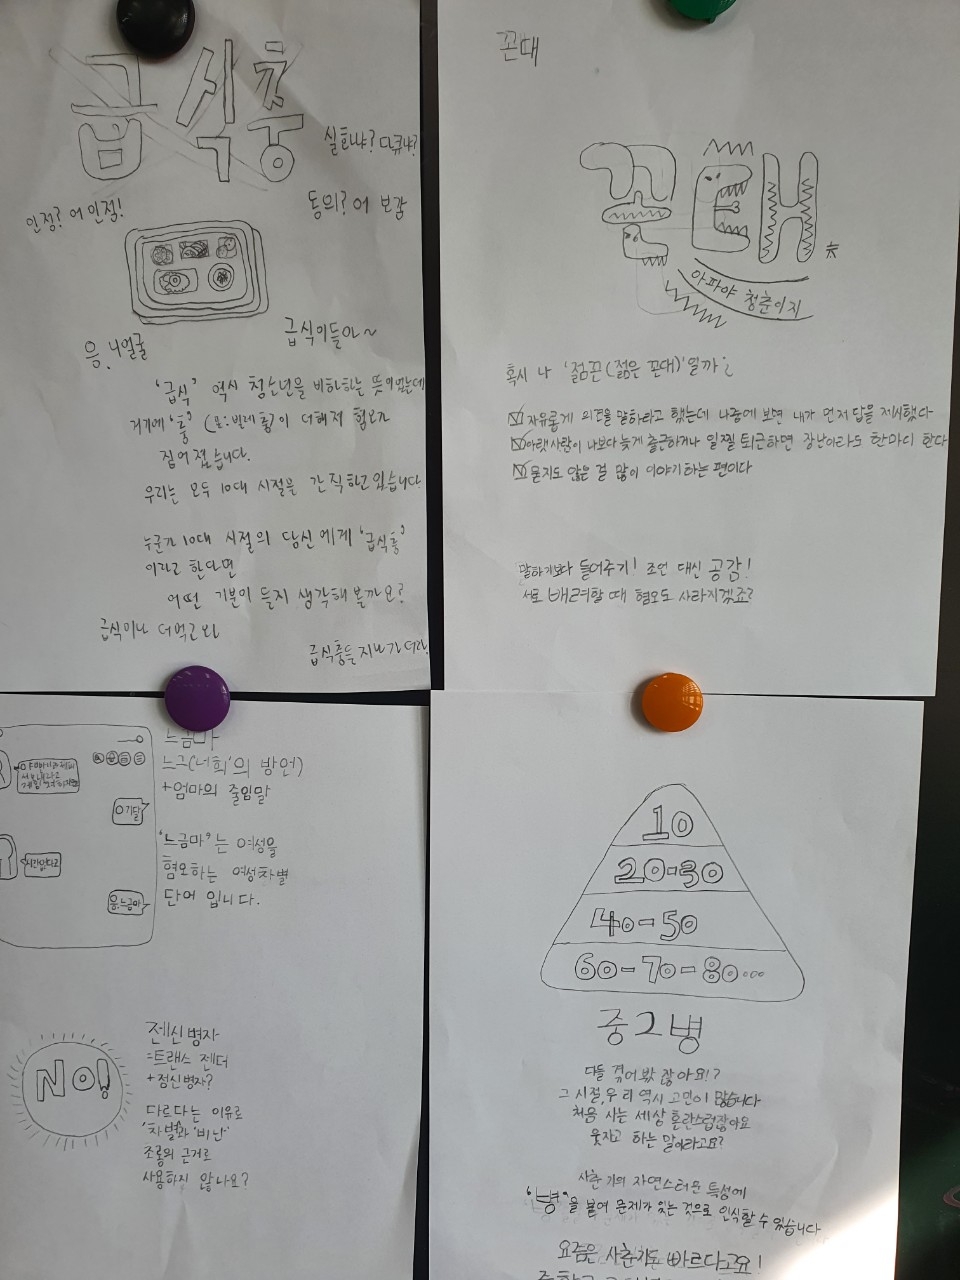 급식충
실화냐? 다큐냐?
인정? 어 인정!
동의? 어 보감
응. 니얼굴
급식이들아~
'급식' 역시 청소년을 비하하는 뜻이있는데
거기에 '충' (虫:벌레 충)이 더해져 혐오가
짙어졌습니다.
우리는 모두 10대 시절을 간직하고 있습니다
누군가 10대 시절의 당신에게 '급식충'
이라고 한다면
어떤 기분이 들지 생각해 볼까요?
급식이나 더먹고와
급식충들 지나가더라
꼰대
꼰대
아파야 청춘이지
혹시 나 '젊꼰(젊은 꼰대)'일까?
자유롭게 의견을 말하라고 했는데 나중에 보면 내가 먼저 답을 제시했다
아랫사람이 나보다 늦게 출근하거나 일찍 퇴근하면 장난이라도 한마디 한다
묻지도 않은 걸 많이 이야기하는 편이다
말하기보다 들어주기! 조언 대신 공감!
서로 배려할 때 혐오도 사라지겠죠?
느금마
느그('너희'의 방언)
+엄마의 줄임말
ㅇ기달
시간없다고
응.느금마
'느금마'는 여성을
혐오하는 여성차별
단어 입니다.
NO!
젠신병자
=트랜스 젠더
+정신병자?
다르다는 이유로
'차별'과 '비난'
조롱의 근거로
사용하지 않나요?
10
20-30
40-50
60-70-80...
중2병
다들 겪어봤 잖아요!?
그 시절, 우리 역시 고민이 많습니다
처음 사는 세상 혼란스럽잖아요
웃자고 하는 말이라고요?
사춘기의 자연스러운 특성에
'병'을 붙여 문제가 있는 것으로 인식할 수 있습니다
요즘은 사춘기도 빠르다고요!